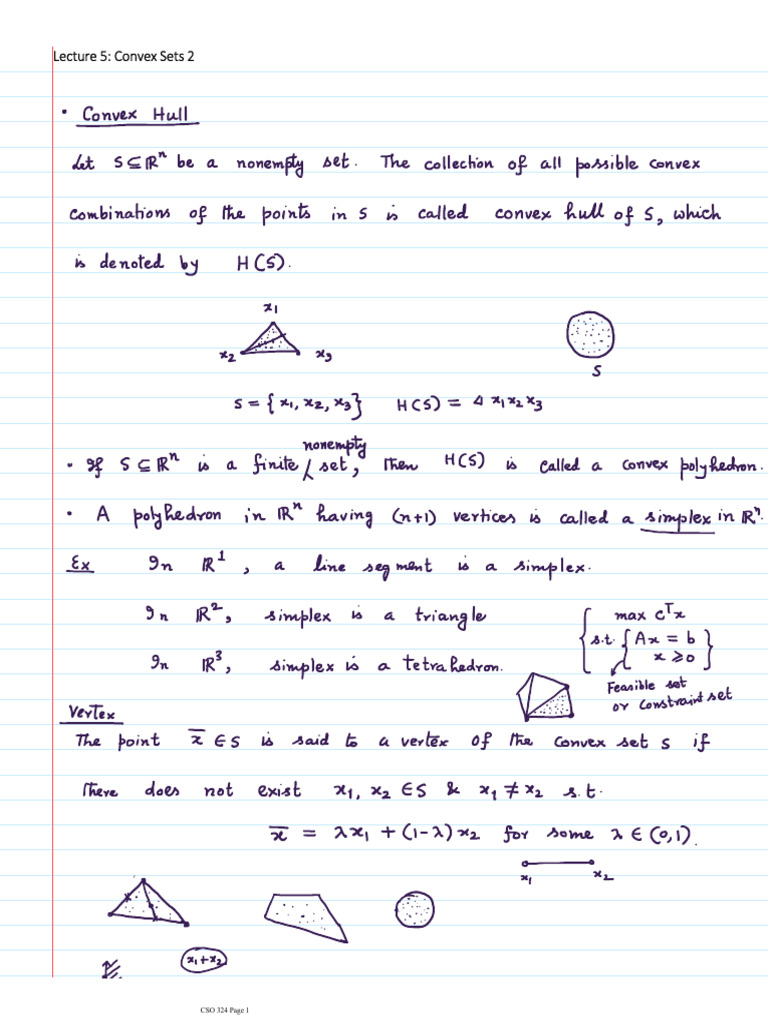 Lecture 5: Convex Sets 2
• Convex Hull
Let S ⊆ ℝⁿ be a nonempty set. The collection of all possible convex
combinations of the points in S is called convex hull of S, which
is denoted by H(S).
x₁
x₂ x₃
S
S = {x₁, x₂, x₃} H(S) = Δ x₁x₂x₃
nonempty
• If S ⊆ ℝⁿ is a finite set, then H(S) is called a convex polyhedron.
• A polyhedron in ℝⁿ having (n+1) vertices is called a simplex in ℝⁿ.
Ex In ℝ¹, a line segment is a simplex.
In ℝ², simplex is a triangle
In ℝ³, simplex is a tetrahedron.
max cᵀx
s.t. Ax = b
x ≥ 0
Feasible set
or constraint set
Vertex
The point x̅ ∈ S is said to a vertex of the convex set S if
there does not exist x₁, x₂ ∈ S & x₁ ≠ x₂ s.t.
x̅ = λx₁ + (1-λ)x₂ for some λ ∈ (0,1).
x₁ x₂
x₁+x₂
CSO 324 Page 1